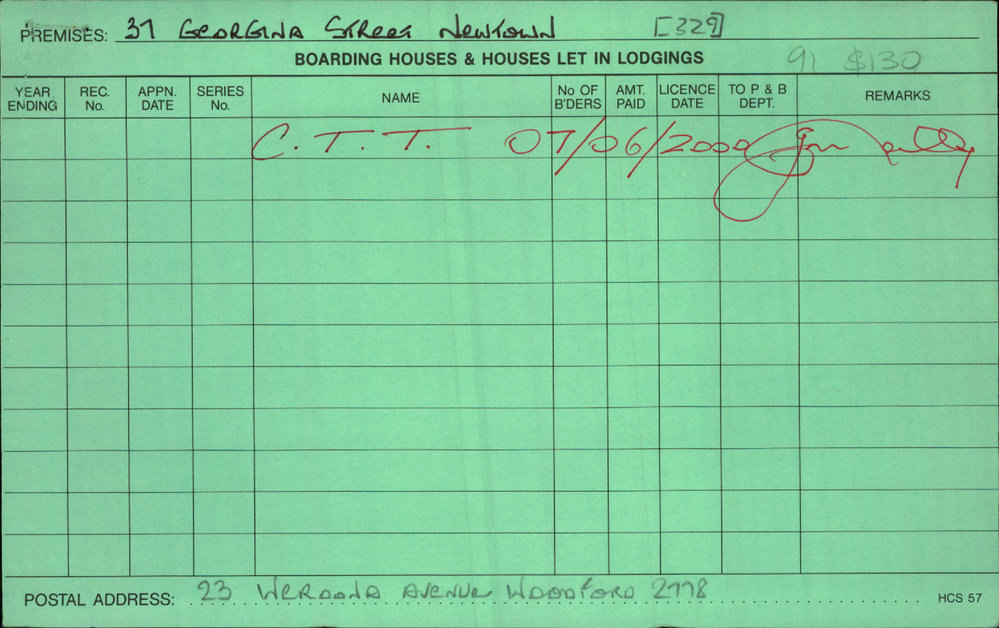 PREMISES: 37 GEORGINA STREET NEWTOWN [329]
BOARDING HOUSES & HOUSES LET IN LODGINGS 91 $130
YEAR ENDING REC. No. APPN. DATE SERIES No. NAME No OF B'DERS AMT. PAID LICENCE DATE TO P & B DEPT. REMARKS
C. T. T. 07/06/2000
POSTAL ADDRESS: 23 WEROONA AVENUE WOODFORD 2778 HCS 57